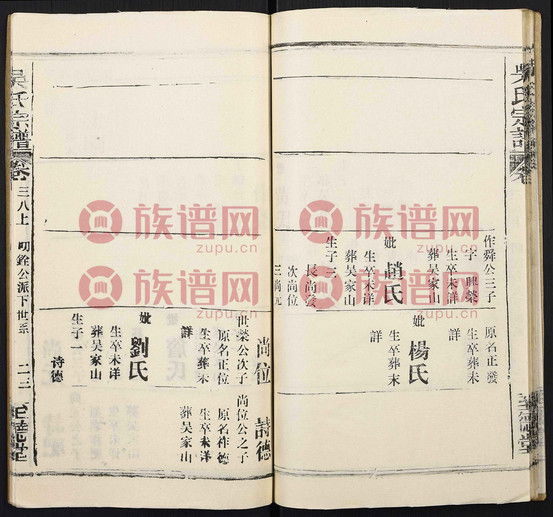 吳氏宗譜
卷
作舜公三子
生卒未洋
葬吳家山
妣趙氏
生卒未洋
葬吳家山
生子三
長尚發
次尚位
三尚元
原名正發
生卒葬未
詳
妣楊氏
生卒葬未
詳
尚位
世榮公次子
原名正位
生卒葬未
詳
妣劉氏
生卒未洋
葬吳家山
生子一
诗德
詩德
尚位公之子
原名祚德
生卒未洋
葬吳家山
吳氏宗譜
卷
三八上
明銓公派下世系
二三
至德堂
族谱网
zupu.cn
族谱网
zupu.cn
族谱网
zupu.cn
族谱网
zupu.cn